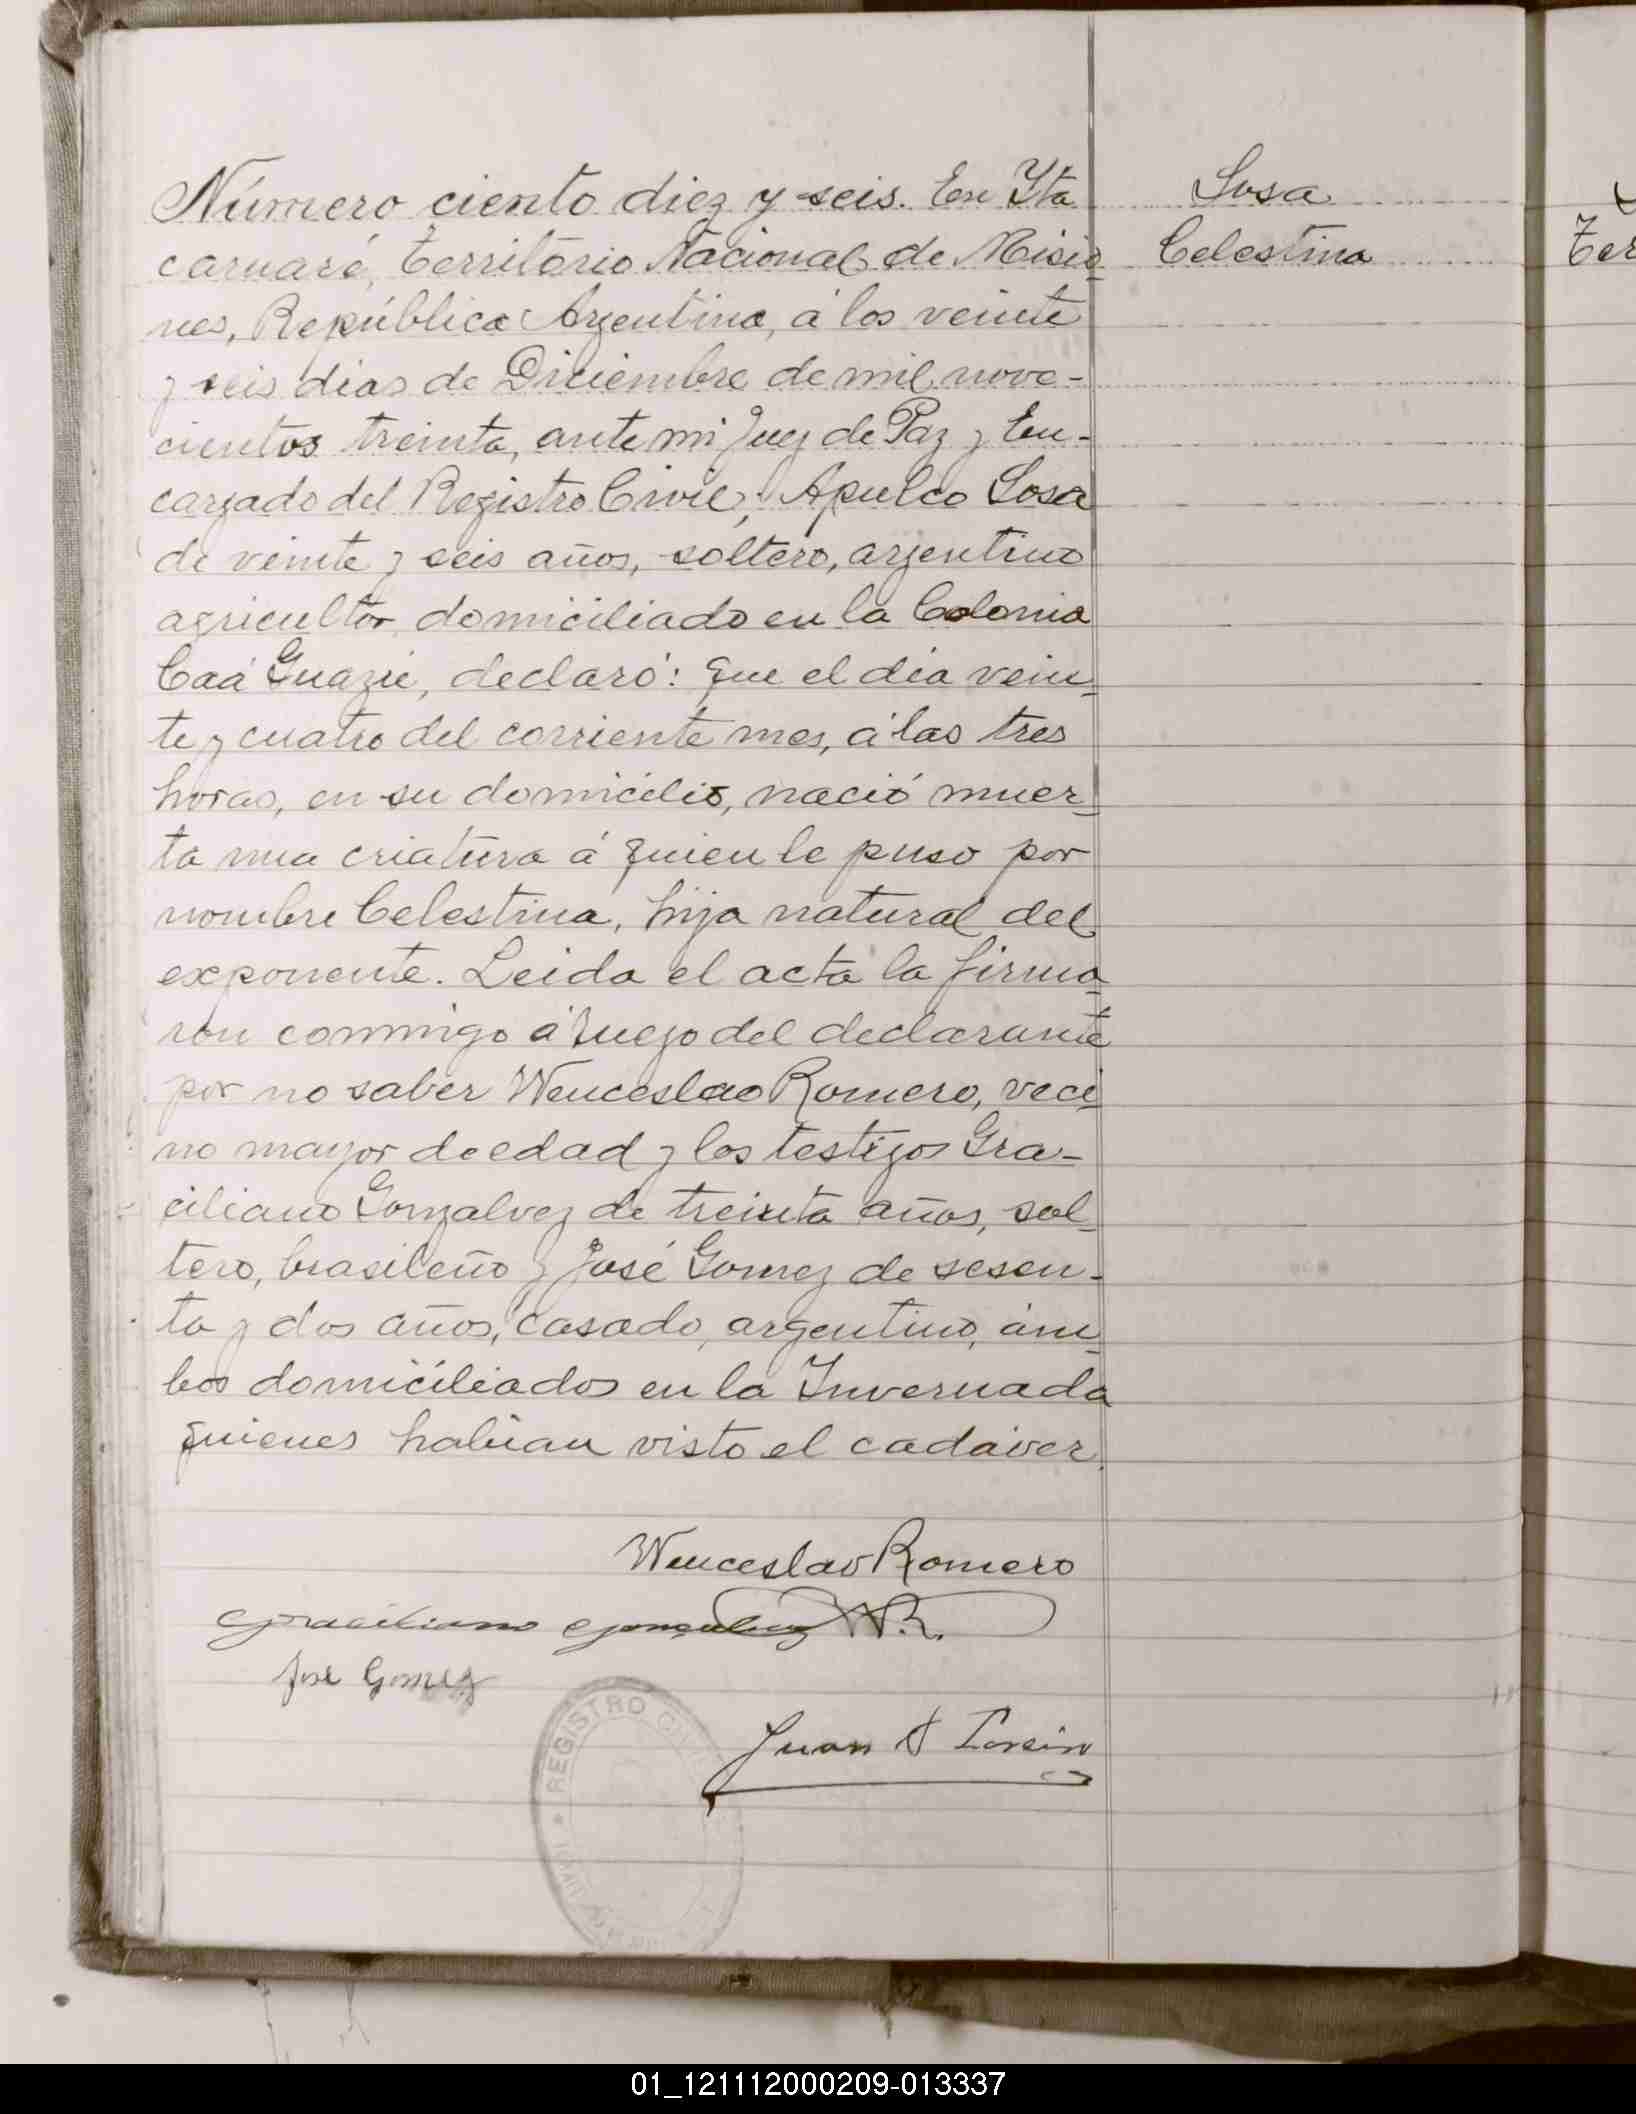 Número ciento diez y seis. En Ita
caruaré, Territorio Nacional de Misio
nes, República Argentina, á los veinte
y seis dias de Diciembre de mil nove-
cientos treinta, ante mi Juez de Paz y En-
cargado del Registro Civil, Apulco Sosa
de veinte y seis años, soltero, argentino
agricultor domiciliado en la Colonia
Caá Guazú, declaró: Que el dia vein-
te y cuatro del corriente mes, á las tres
horas, en su domicilio, nació muer-
ta una criatura á quien le puso por
nombre Celestina, hija natural del
exponente. Leida el acta la firma-
ron conmigo á ruego del declarante
por no saber Wenceslao Romero, veci-
no mayor de edad y los testigos Gra-
ciliano Gonzalvez de treinta años, sol-
tero, brasileño y José Gomez de sesen-
ta y dos años, casado, argentino, ám-
bos domiciliados en la Invernada
quienes habian visto el cadáver.
Sosa
Celestina
Ter
Wenceslao Romero
Graciliano W.R.
José Gomez
Juan
REGISTRO CIVIL
01_121112000209-013337